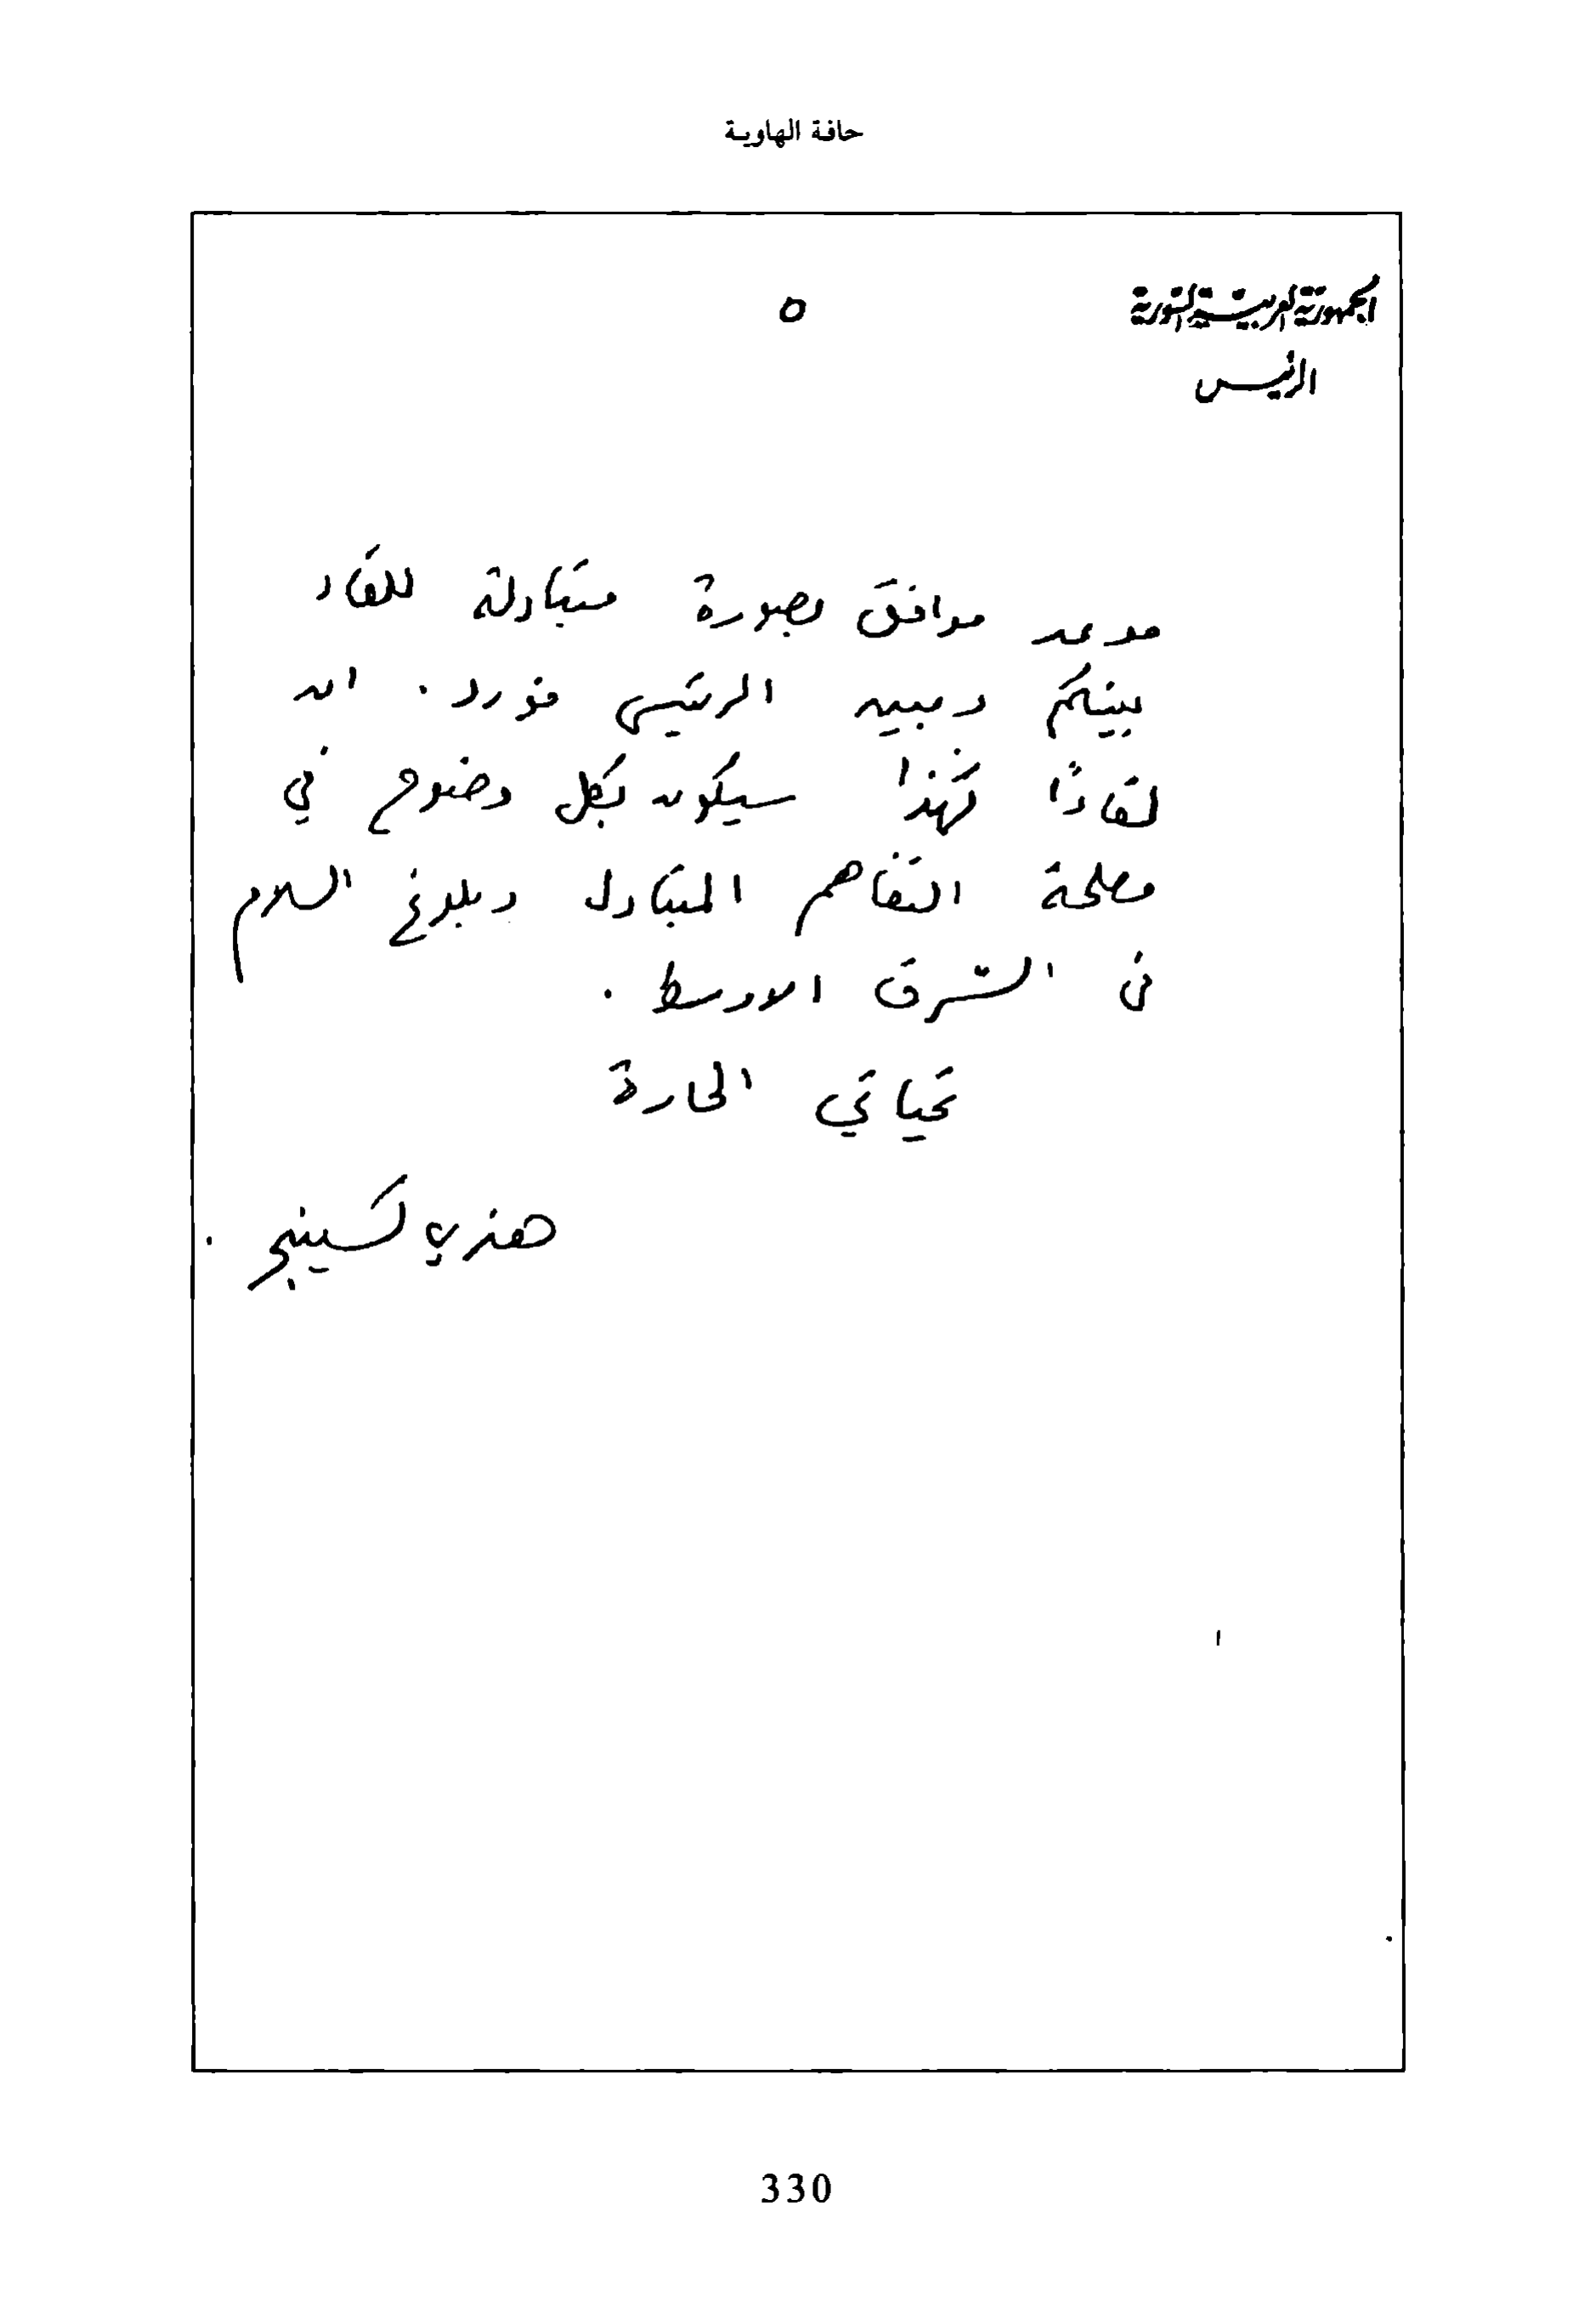 حافة الهاوية
الجمهورية العربية السورية
٥
الرئيس
موعد موافق بصورة متبادلة للقاء
بينكم وبين الرئيس فورد. ان
لقاءً كهذا سيكون بكل وضوح في
مصلحة التفاهم المتبادل وبلوغ السلام
في الشرق الاوسط.
تحياتي الحارة
هنري كسينجر.
330